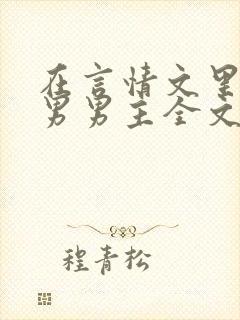 在言情文里
男男主全文
程青松